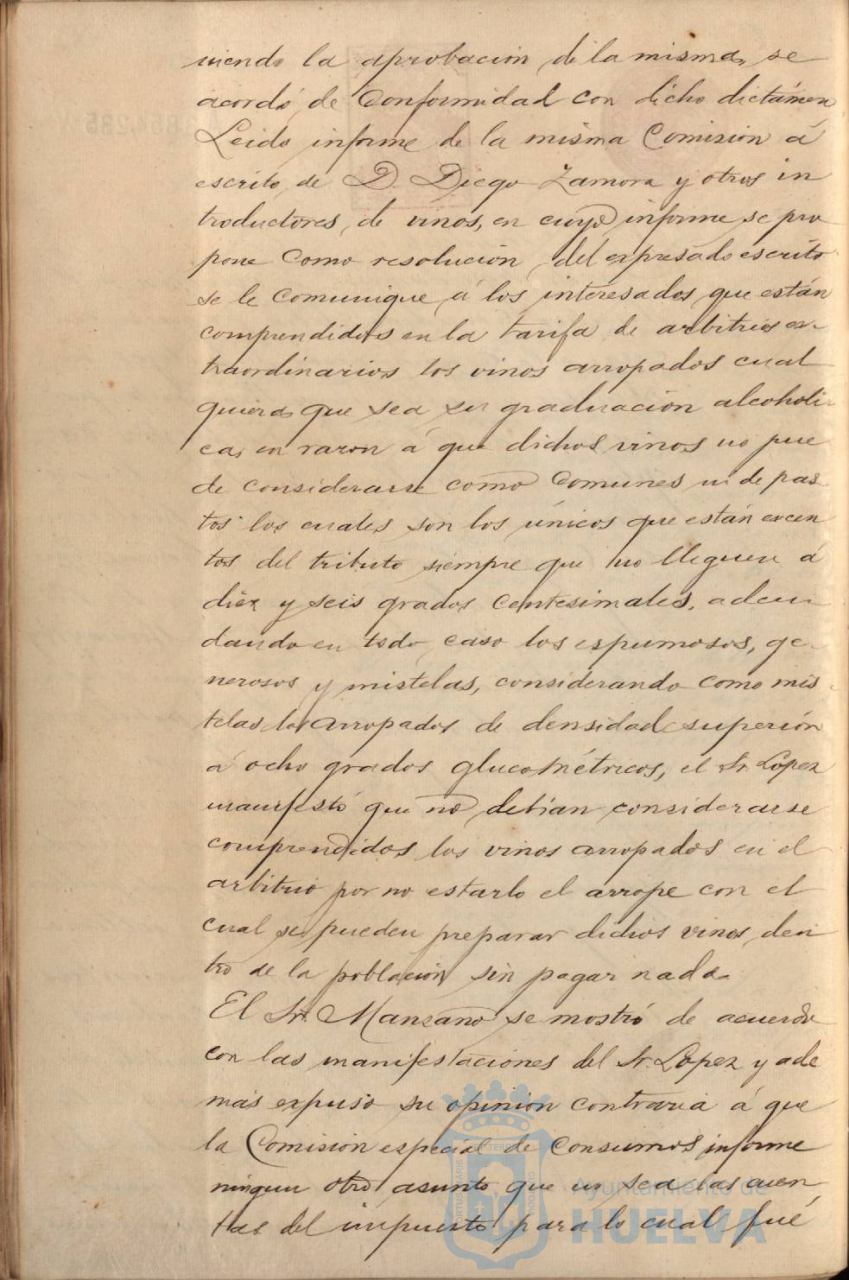 niendo la aprobacion de la misma, se
acordó de Conformidad con dicho dictámen
Leido informe de la misma Comision á
escrito de D. Diego Zamora y otros in
troductores, de vinos, en cuyo informe se pro
pone como resolución, del expresado escrito
se le comunique á los interesados, que están
comprendidos en la tarifa de arbitrios ex-
traordinarios los vinos arropados cual
quiera que sea su graduacion alcoholi-
ca, en razon á que dichos vinos no pue
de considerarse como Comunes ni de pas
tos los cuales son los únicos que están excen
tos del tributo siempre que no lleguen á
diez y seis grados centesimales, adeu
dando en todo caso los espumosos, ge-
nerosos y mistelas, considerando como mis-
telas los arropados de densidad superior
á ocho grados glucométricos, el Sr. Lopez
manifestó que no debian considerarse
comprendidos los vinos arropados en el
arbitrio por no estarlo el arrope con el
cual se pueden preparar dichos vinos, den
tro de la población sin pagar nada.
El Sr. Manzano se mostró de acuerdo
con las manifestaciones del Sr. Lopez y ade
más expuso su opinion contraria á que
la Comisión especial de Consumos informe
ningun otro asunto que no sea las cuen
tas del impuesto para lo cual fué
Ayuntamiento de
HUELVA